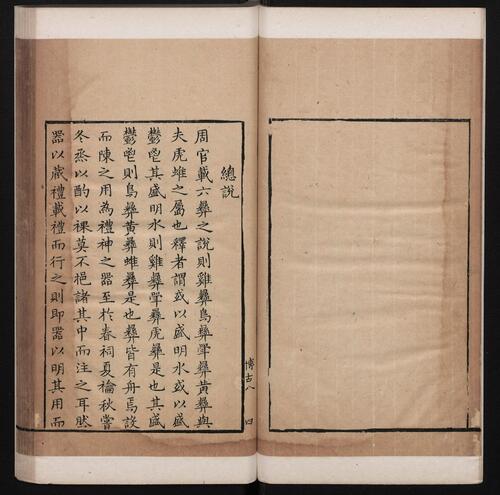 總說
周官載六彝之說則雞彝鳥彝斝彝黃彝與
夫虎蜼之屬也釋者謂或以盛明水或以盛
鬱鬯其盛明水則雞彝斝彝虎彝是也其盛
鬱鬯則鳥彝黃彝蜼彝是也彝皆有舟焉設
而陳之用為禮神之器至於春祠夏禴秋嘗
冬烝以酌以祼莫不挹諸其中而注之耳然
器以藏禮載禮而行之則即器以明其用而
博古八
四